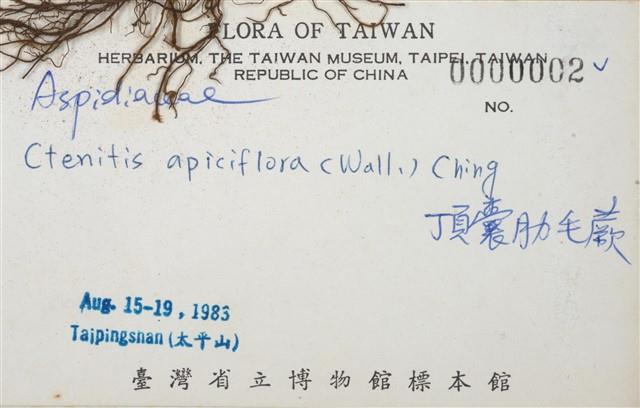 FLORA OF TAIWAN
HERBARIUM, THE TAIWAN MUSEUM, TAIPEI, TAIWAN
REPUBLIC OF CHINA
0000002
NO.
Aspidiaceae
Ctenitis apiciflora (Wall.) Ching
頂囊肋毛蕨
Aug. 15-19, 1983
Taipingshan (太平山)
臺灣省立博物館標本館